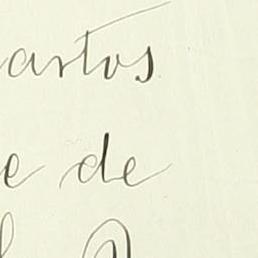 artos
e de